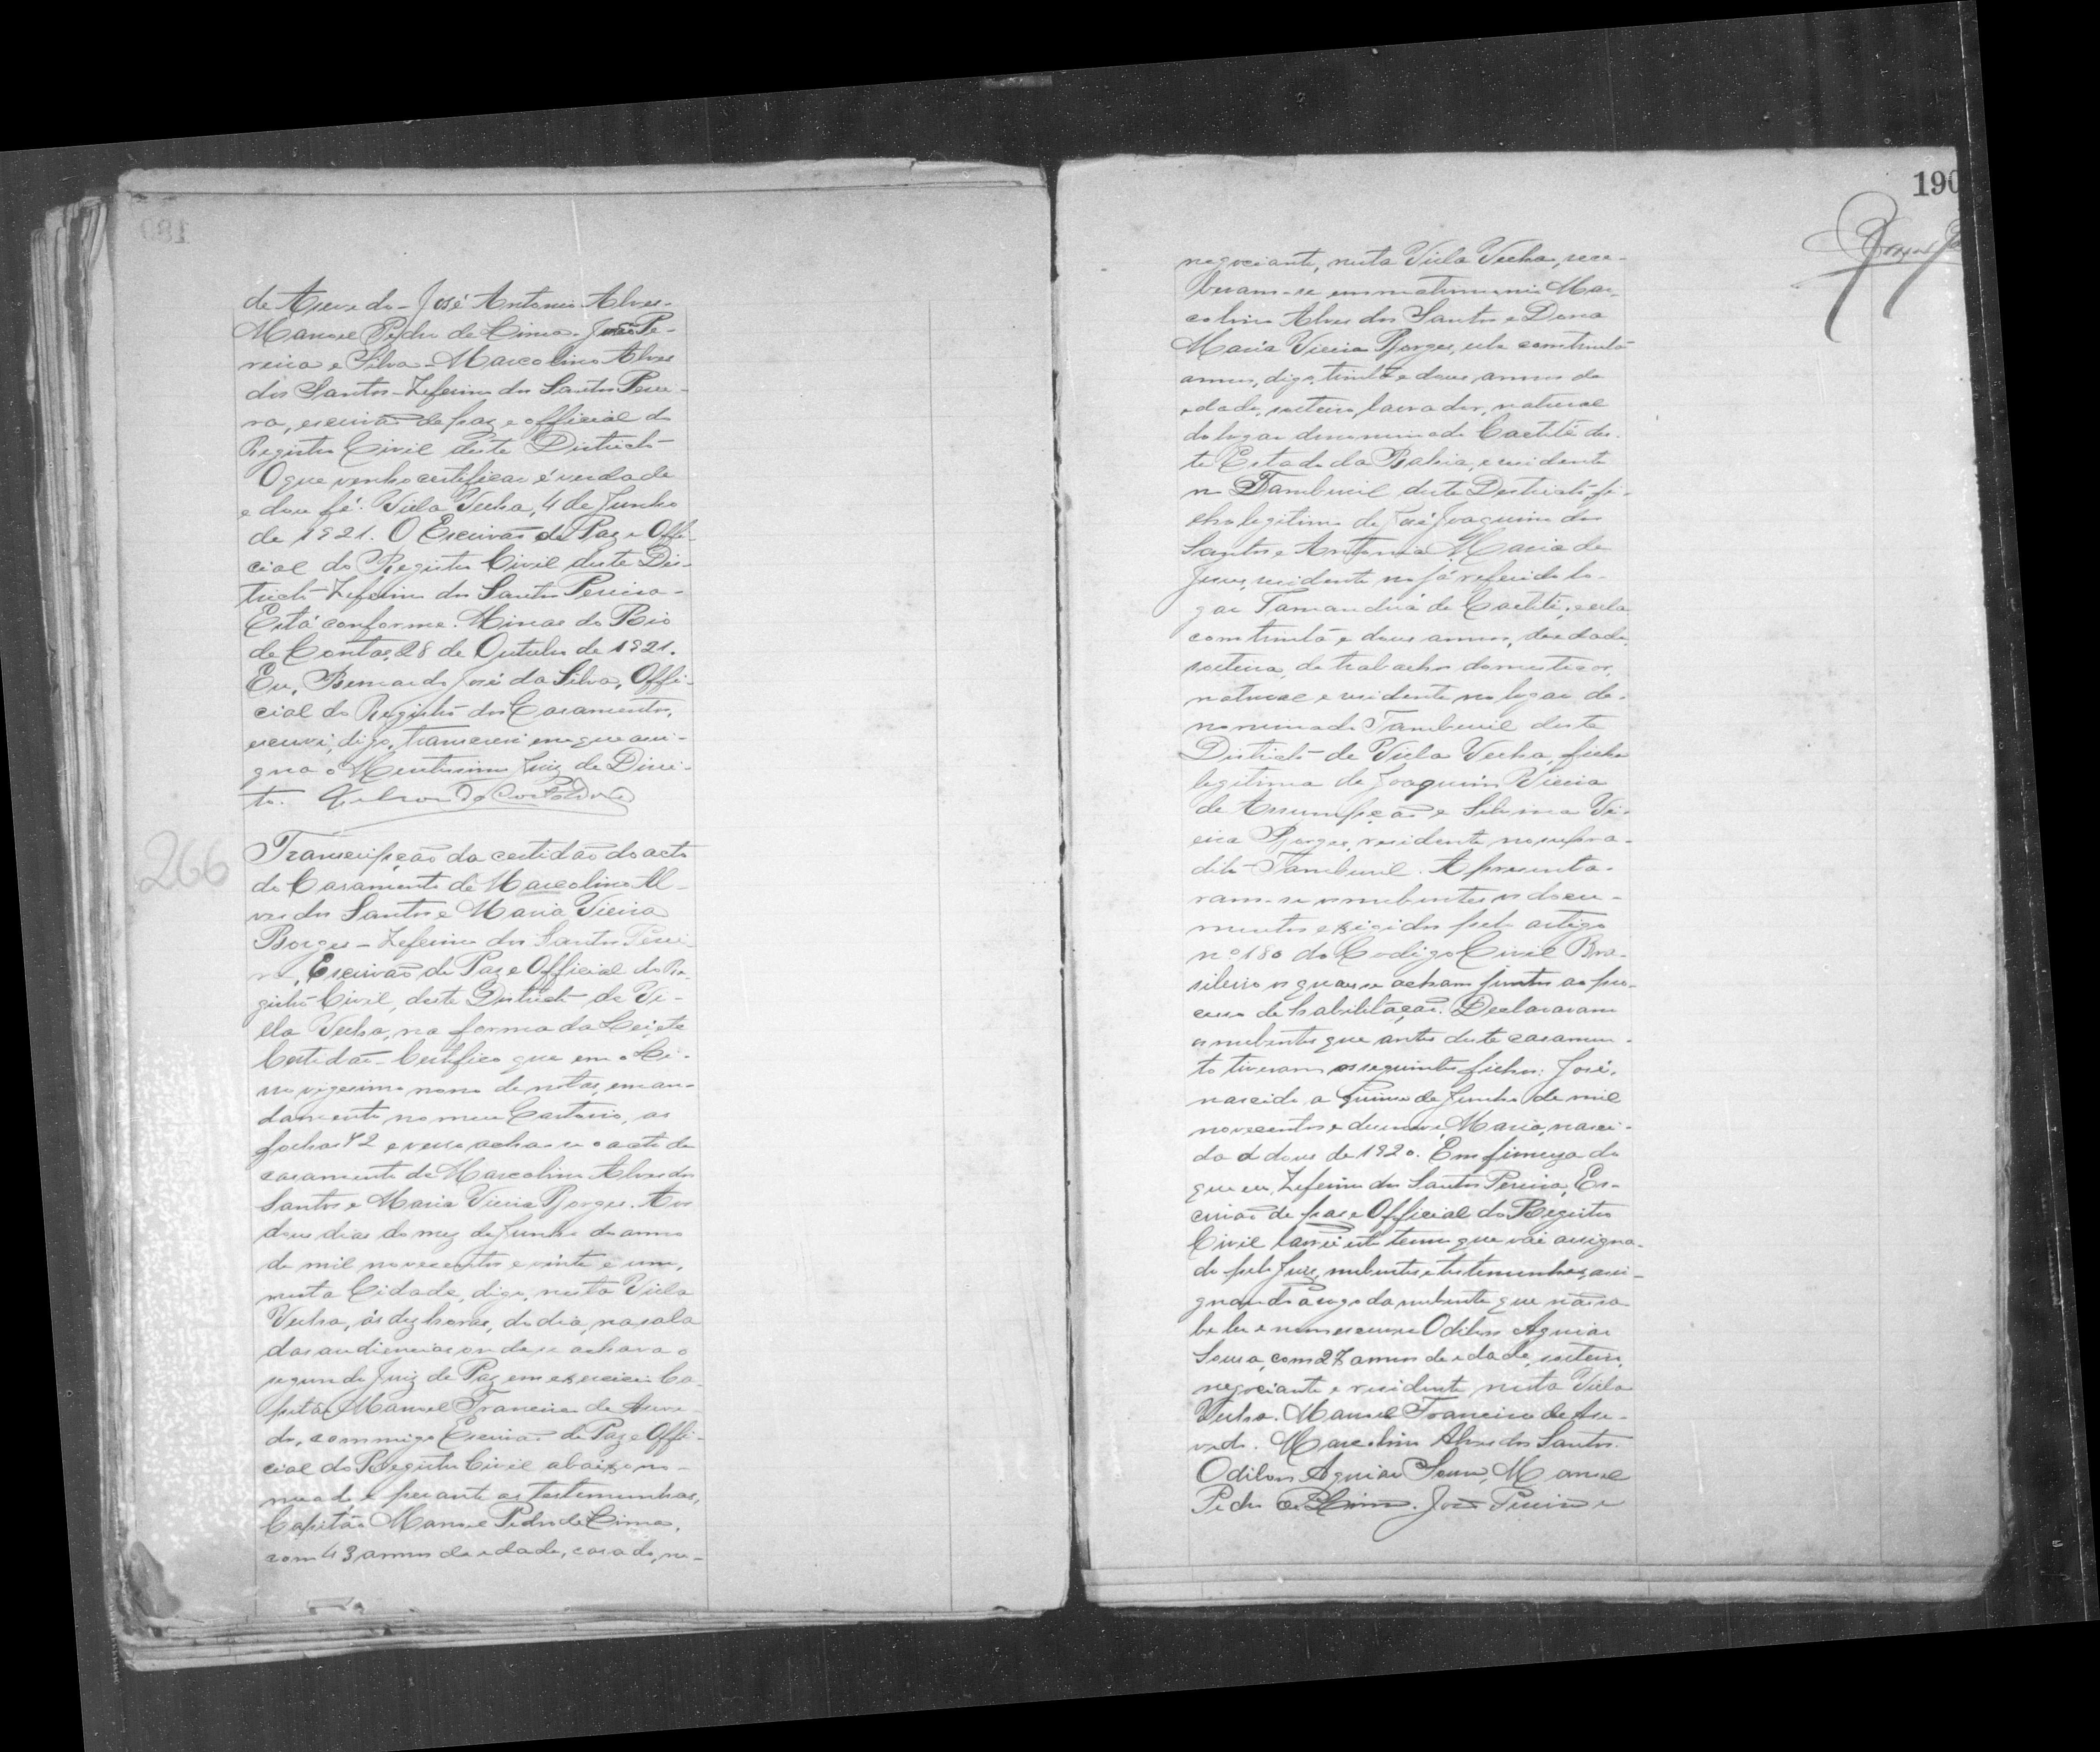 de Asevedo - José Antonio Alves -
Manoel Pedro de Cima - João Pe-
reira e Silva - Marcolino Alves
dos Santos - Zeferino dos Santos Perei-
ra, escrivão de paz e official do
Registro Civil deste Districto
O que venho certificar é verdade
e dou fé. Villa Velha, 4 de Junho
de 1921. O Escrivão de Paz e Offi-
cial do Registro Civil deste Dis-
tricto Zeferino dos Santos Pereira -
Está conforme. Minas do Rio
de Contas, 28 de Outubro de 1921.
Eu, Bernardo José da Silva, Offi-
cial do Registro dos Casamentos,
escrevi, digo, transcrevi em que assi-
gna o Meritissimo Juiz de Direi-
to.
266
Transcripção da certidão do acto
de Casamento de Marcolino Al-
ves dos Santos e Maria Vieira
Borges - Zeferino dos Santos Perei-
ra, Escrivão de Paz e Official do Re-
gistro Civil, deste Districto de Vi-
lla Velha, na forma da Lei, etc
Certidão - Certifico que em o Li-
vro vigesimo nono de notas, em an-
damento no meu Cartorio, as
folhas 42 e verso acha-se o acto de
casamento de Marcolino Alves dos
Santos e Maria Vieira Borges. Aos
dous dias do mez de Junho do anno
de mil novecentos e vinte e um,
nesta Cidade, digo, nesta Villa
Velha, ás dez horas, do dia, na sala
das audiencias onde se achava o
segundo Juiz de Paz em exercicio Ca-
pitão Manoel Francisco de Aseve-
do, commigo Escrivão de Paz e Offi-
cial do Registro Civil abaixo no-
meado e perante as testemunhas,
Capitão Manoel Pedro de Cima,
com 43 annos de edade, casado, ne-
190
negociante, nesta Villa Velha, rece-
beram-se em matrimonio Mar-
colino Alves dos Santos e Dona
Maria Vieira Borges, elle com trinta
annos, digo, trinta e dous annos de
edade, solteiro, lavrador, natural
do lugar denominado Caetité des-
te Estado da Bahia, e residente
no Tamburil deste Districto, fi-
lho legitimo de José Joaquim dos
Santos e Antonia Maria de
Jesus, residente no já referido lo-
gar Tamanduá de Caetité, e ella
com trinta e dous annos, de edade,
solteira, de trabalhos domesticos,
natural e residente no logar de-
nominado Tamburil deste
Districto de Villa Velha, filha
legitima de Joaquim Vieira
de Assumpção e Silvina Vi-
eira Borges, residente no supra-
dito Tamburil. Apresenta-
ram-se os nubentes os docu-
mentos exigidos pelo artigo
nº 180 do Codigo Civil Bra-
sileiro os quaes se acham juntos ao pro-
cesso de habilitação. Declararam
os nubentes que antes deste casamen-
to tiveram os seguintes filhos: José,
nascido a quinse de Junho de mil
novecentos e desenove, Maria, nasci-
da a dous de 1920. Em firmeza do
que eu, Zeferino dos Santos Pereira, Es-
crivão de paz e Official do Registro
Civil lavrei este termo que vai assigna-
do pelo Juiz, nubentes e testemunhas, assi-
gnando a rogo da nubente que não sa-
be ler e nem escrever Odilon Aguiar
Sousa, com 27 annos de edade, solteiro,
negociante e residente nesta Villa
Velha. Manoel Francisco de Ase-
vedo. Marcolino Alves dos Santos.
Odilon Aguiar Sousa, Manoel
Pedro de Cima. José Pereira e